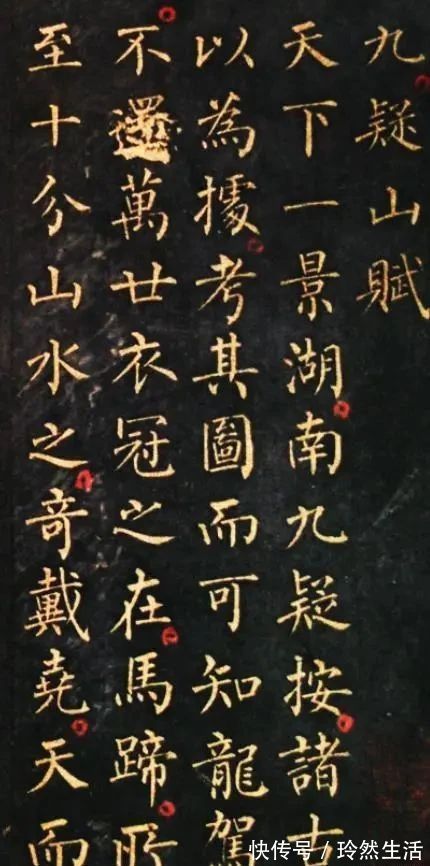 九疑山賦
天下一景湖南九疑按諸
以為據考其圖而可知龍駕
不還萬廿衣冠之在馬蹄所
至十分山水之奇戴堯天而
快传号/玲然生活